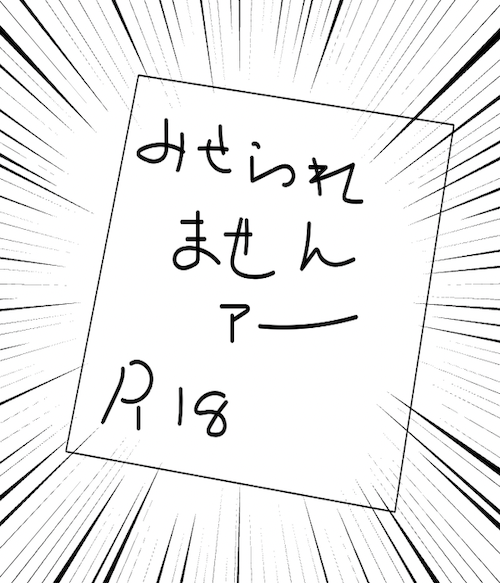 みせられ
ません
アー
R18